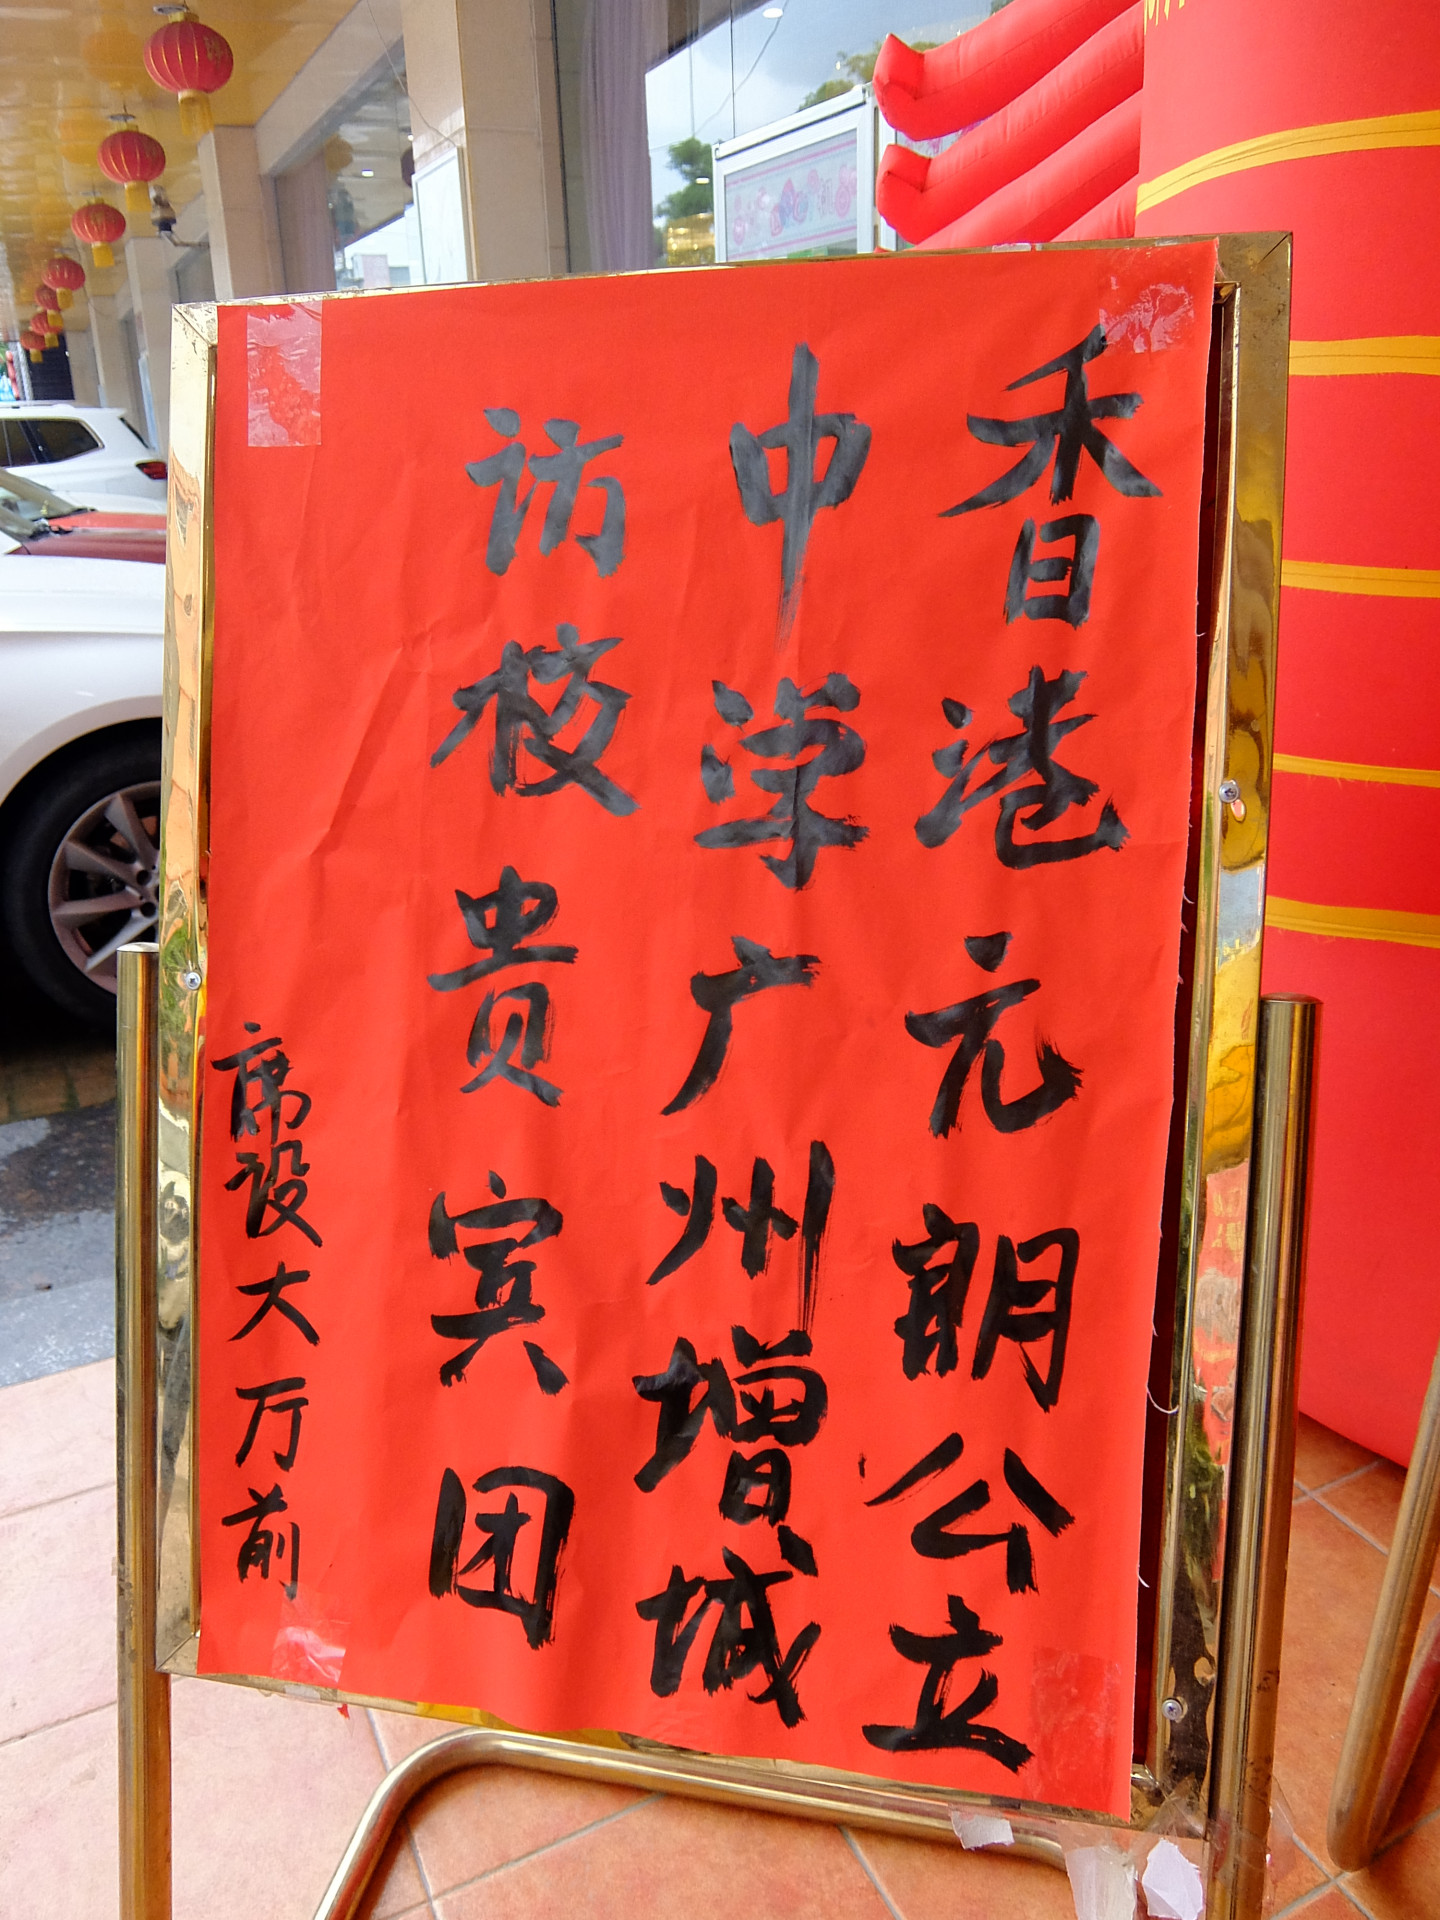 香港元朗公立
中学广州增城
访校贵宾团
席设大厅前